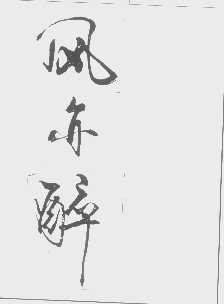 风亦醉